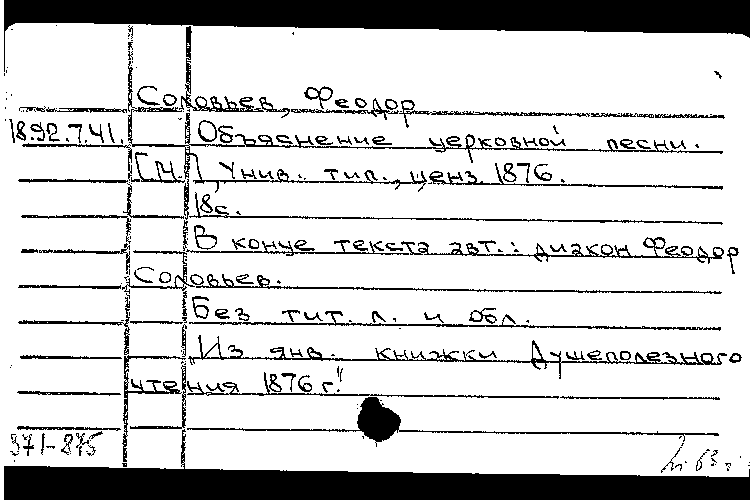 Соловьев, Феодор
1892.7.41. Объяснение церковной песни.
[М.], Унив. тип., ценз. 1876.
18с.
В конце текста авт.: диакон Феодор
Соловьев.
Без тит. л. и обл.
"Из янв. книжки Душеполезного
чтения 1876 г."
371-875